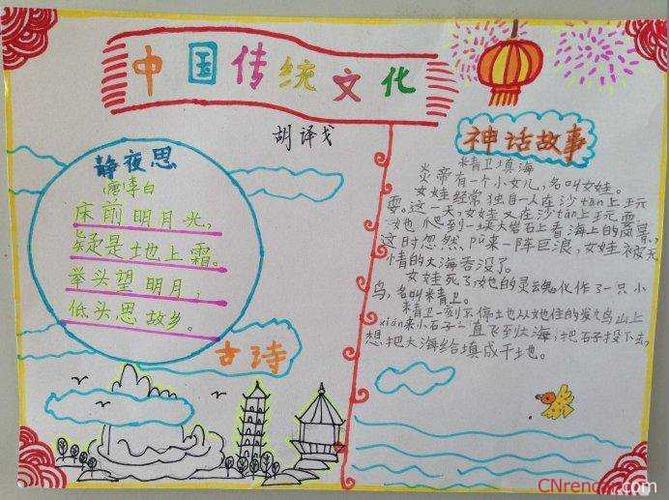 中国传统文化
胡译戈
静夜思
唐李白
床前明月光。
疑是地上霜。
举头望明月,
低头思故乡。
古诗
神话故事
精卫填海
炎帝有一个小女儿,名叫女娃。
女娃经常独自一人在沙tān上玩
耍。这一天,女娃又在沙tān上玩耍。
她爬到一块大岩石上看海上的风景。
这时忽然,pū来一阵巨浪,女娃被无
情的大海吞没了。
女娃死了,她的灵魂化作了一只小
鸟,名叫精卫。
精卫一刻不停地从她住的发九鸟山上
xián来小石子一直飞到大海,把石子投下去,
想把大海给填成干地。
CNrencai.com